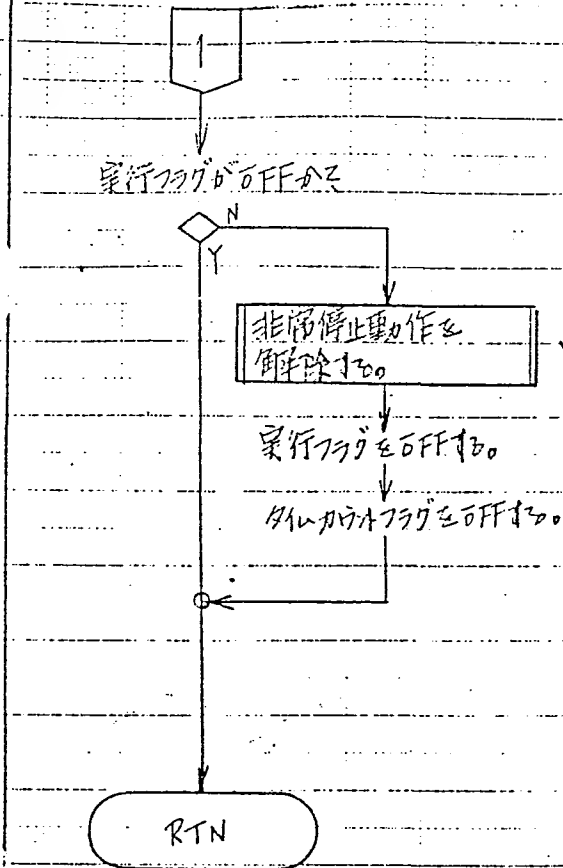 1
実行フラグがOFFかて
N
Y
非常停止動作を
解除する。
実行フラグをOFFする。
タイムカウントフラグをOFFする。
RTN